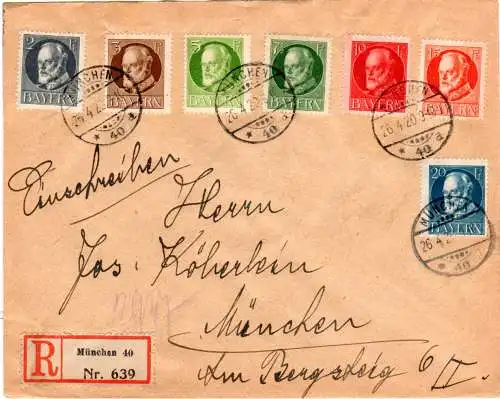 2 Pf
BAYERN
3 Pf
BAYERN
5 Pf
BAYERN
7½ Pf
BAYERN
10 Pf
BAYERN
15 Pf
BAYERN
MÜNCHEN
26.4.20
* 40 a
MÜNCHEN
26.4.20
* 40 a
26.4.20
* 40 a
20 Pf
BAYERN
MÜNCHEN
26.4.2
* 40
Einschreiben
Herrn
Jos. Köberlein
München
Am Bergsteig 6/II.
R
München 40
Nr. 639